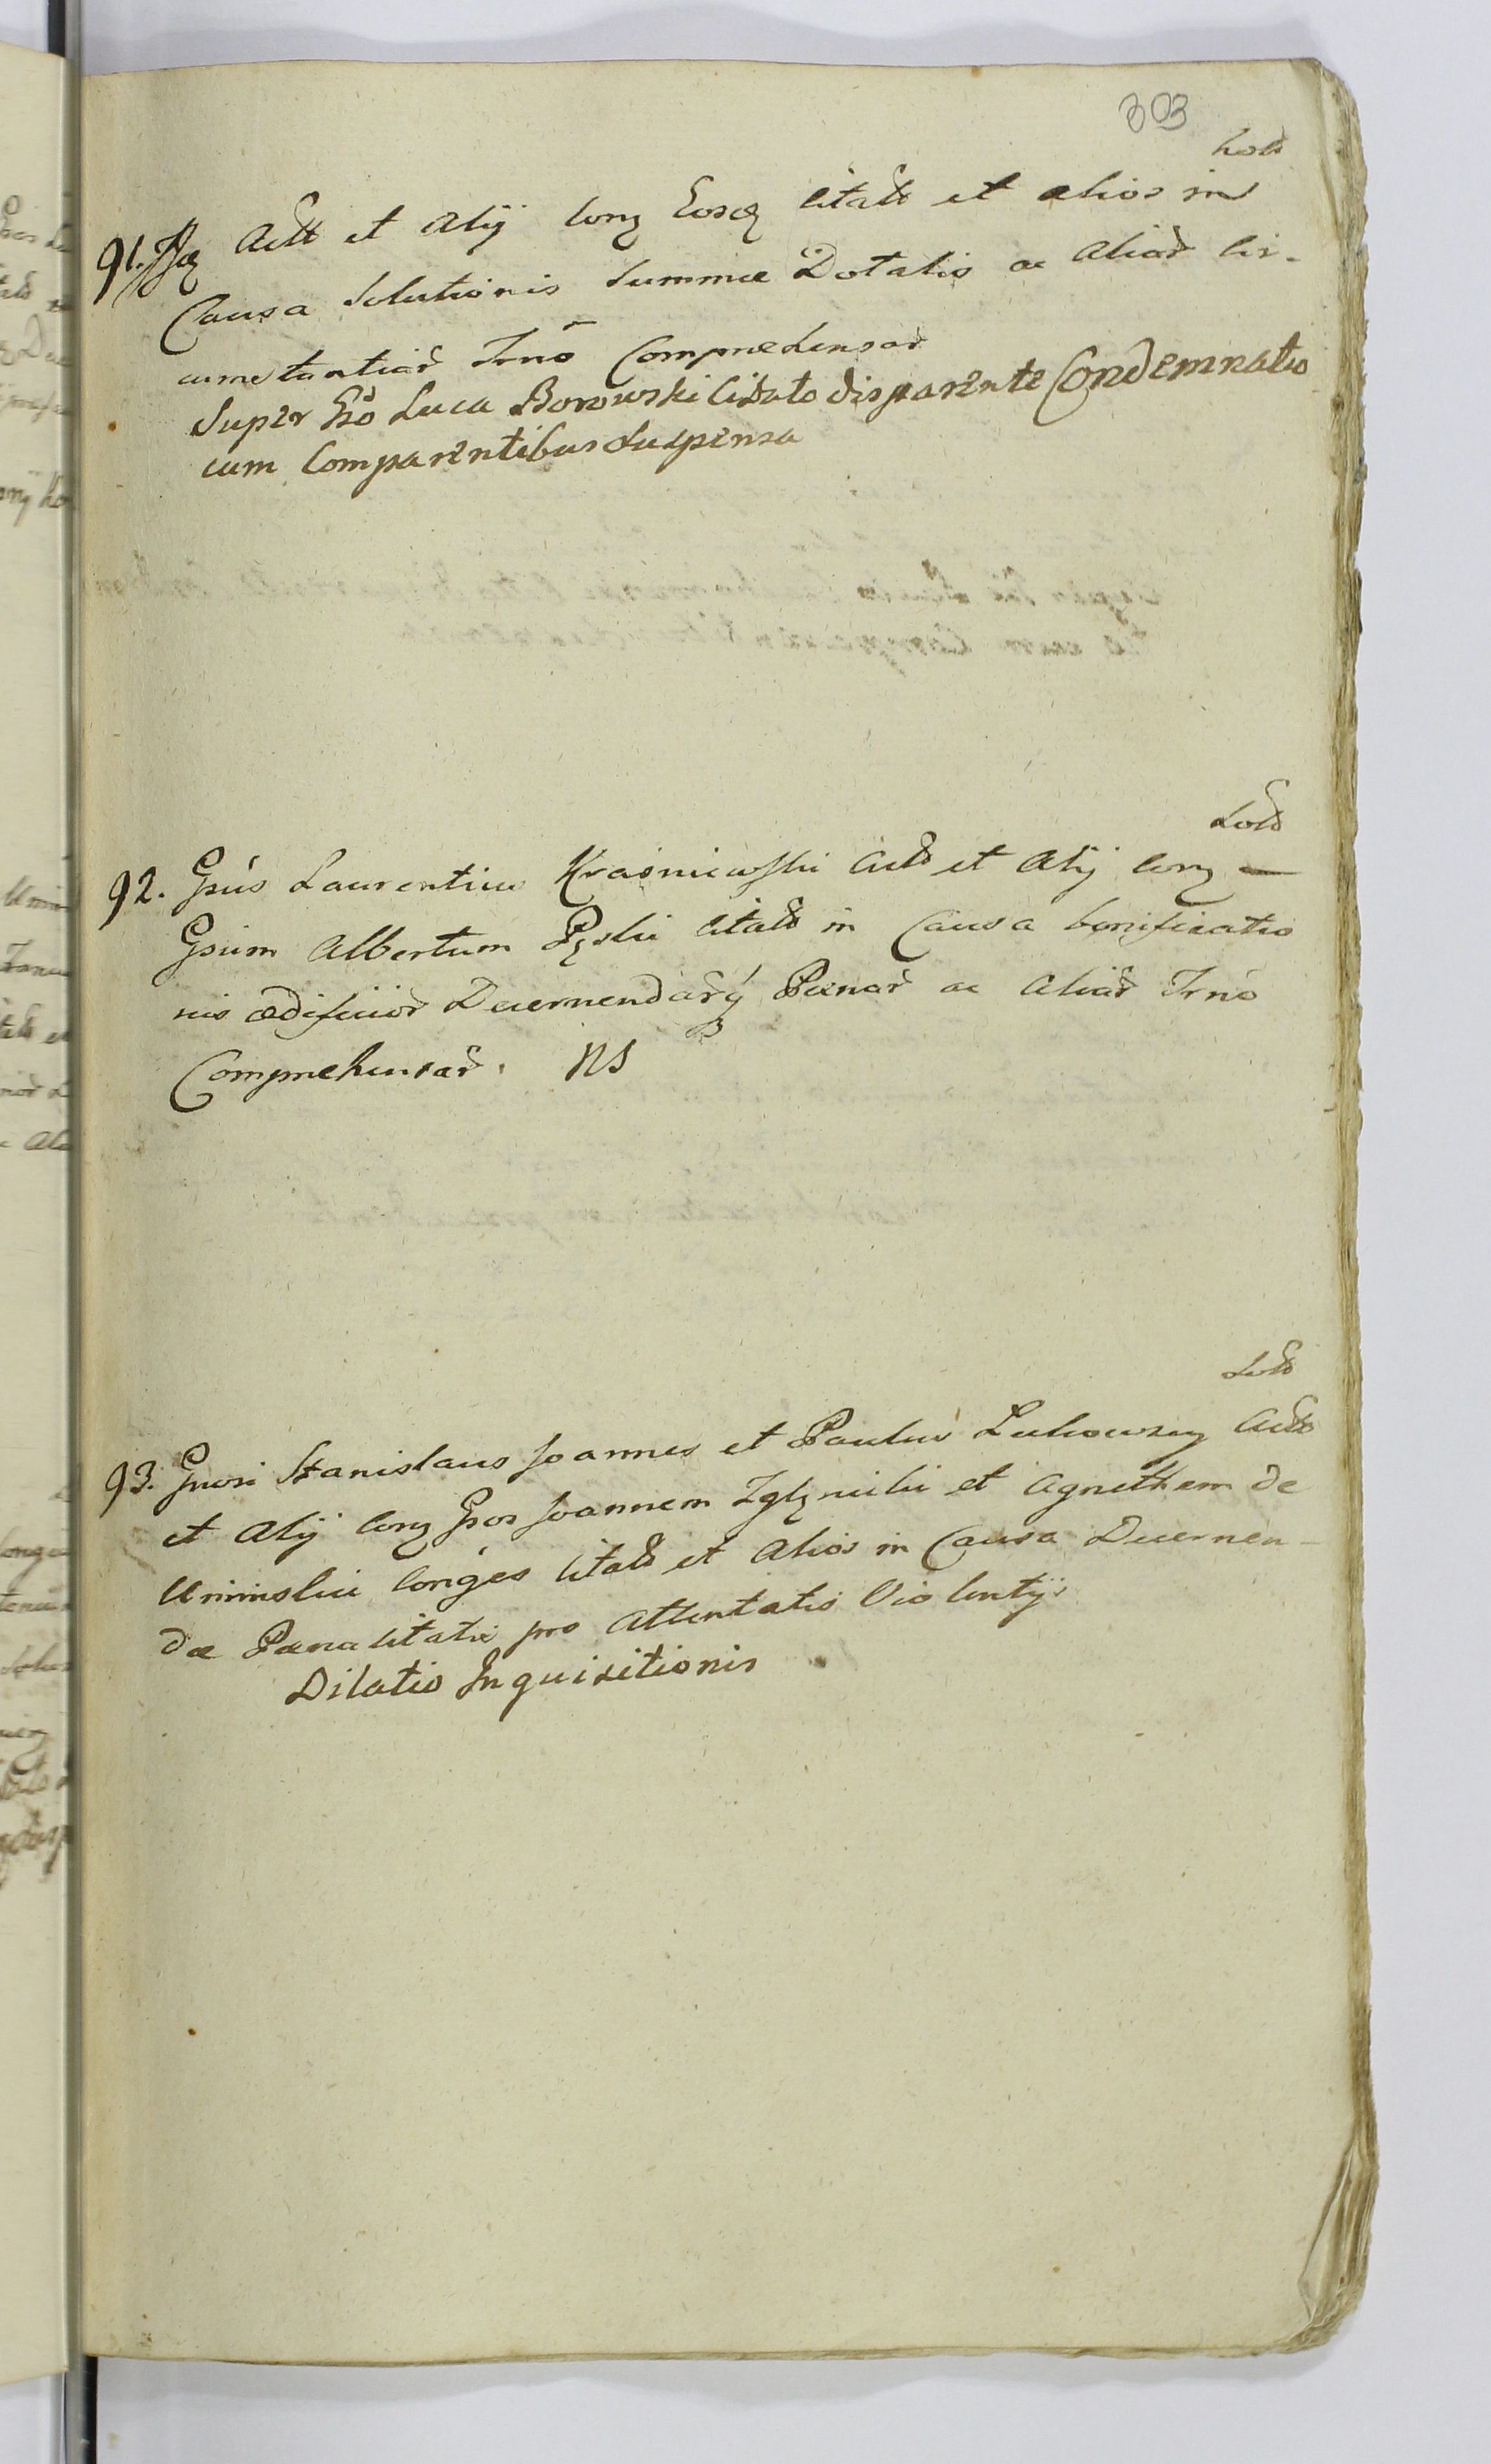 303
91. Actt et Alij Eosq Citatt et alios in
Causa Solutionis Summæ Dotalis ac Aliar Cir-
cumstantiar Trno Compræhensar
Super Gso Luca Borowski Citato disparente Condemnatio
cum Comparentibus Suspensa
92. Gsus Laurentius Kraśniewski Act et Alij
Gsum Albertum Citatt in Causa bonificatio
nis ædificior Decernendar Pænar ac Aliar Trno
Compræhensar. NS
93. Gnosi Stanislaus Joannes et Paulus Lukowscy Actt
et Alij Gsos Joannem et Agnethem de
Uminskie Conges Citatt et Alios in Causa Decernen-
dæ Pænalitatis pro Attentatis Violentijs
Dilatio Inquisitionis